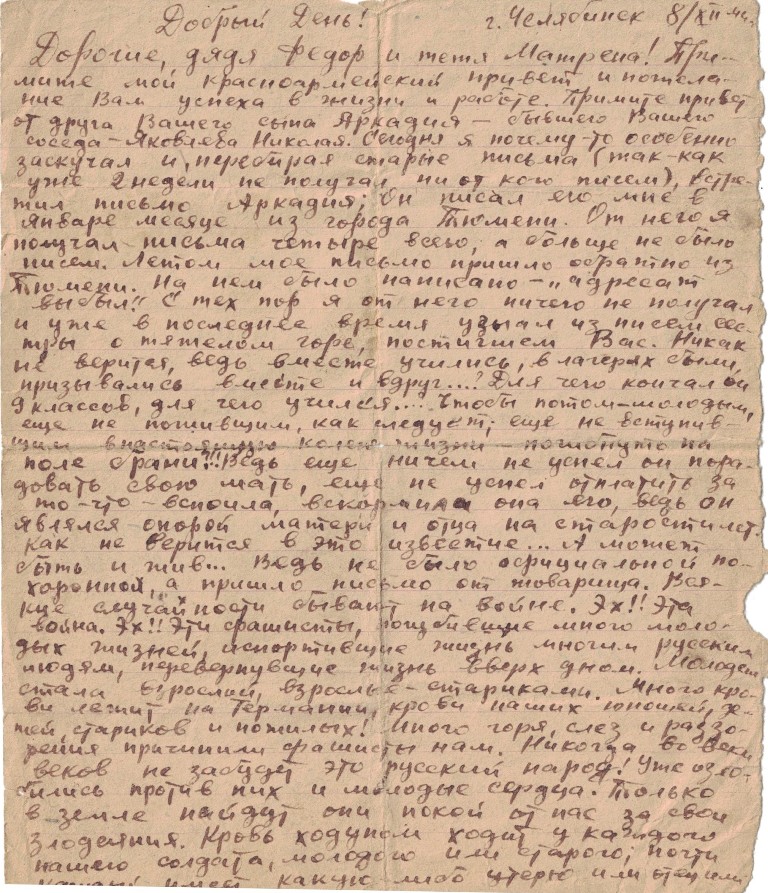 Добрый День! г. Челябинск 8/XII-44г.
Дорогие, дядя Федор и тетя Матрена! При-
мите мой красноармейский привет и пожела-
ние Вам успеха в жизни и работе. Примите привет
от друга Вашего сына Аркадия – бывшего Вашего
соседа – Яковлева Николая. Сегодня я почему-то особенно
заскучал и, перебирая старые письма (так-как
уже 2 недели не получал ни от кого писем), встре-
тил письмо Аркадия; Он писал его мне в
январе месяце из города Тюмени. От него я
получал письма четыре всего, а больше не было
писем. Летом мое письмо пришло обратно из
Тюмени. На нем было написано – „адресат
выбыл". С тех пор я от него ничего не получал
и уже в последнее время узнал из писем сес-
тры о тяжелом горе, постигшем Вас. Никак
не верится, ведь вместе учились, в лагерях были,
призывались вместе и вдруг....? Для чего кончал он
9 классов, для чего учился.... Чтобы потом – молодым,
еще не пожившим, как следует, еще не вступив-
шим в настоящую колею жизни – погибнуть на
поле брани?!! Ведь еще ничем не успел он пора-
довать свою мать, еще не успел отплатить за
то-что – вспоила, вскормила она его, ведь он
являлся опорой матери и отца на старости лет.
Как не верится в это известие... А может
быть и жив... Ведь не было официальной по-
хоронной, а пришло письмо от товарища. Вся-
кие случайности бывают на войне. Эх!! Эта
война. Эх!! Эти фашисты, погубившие много моло-
дых жизней, испортившие жизнь многим русским
людям, перевернувшие жизнь вверх дном. Молодежь
стала взрослой, взрослые – стариками. Много кро-
ви лежит на Германии, крови наших юношей, де-
тей, стариков и пожилых! Много горя, слез и разо-
рения причинили фашисты нам. Никогда во веки
веков не забудет это русский народ! Уже озло-
бились против них и молодые сердца. Только
в земле найдут они покой от нас за свои
злодеяния. Кровь ходуном ходит у каждого
нашего солдата, молодого или старого; почти
каждый имеет какую-либо утерю или отец или